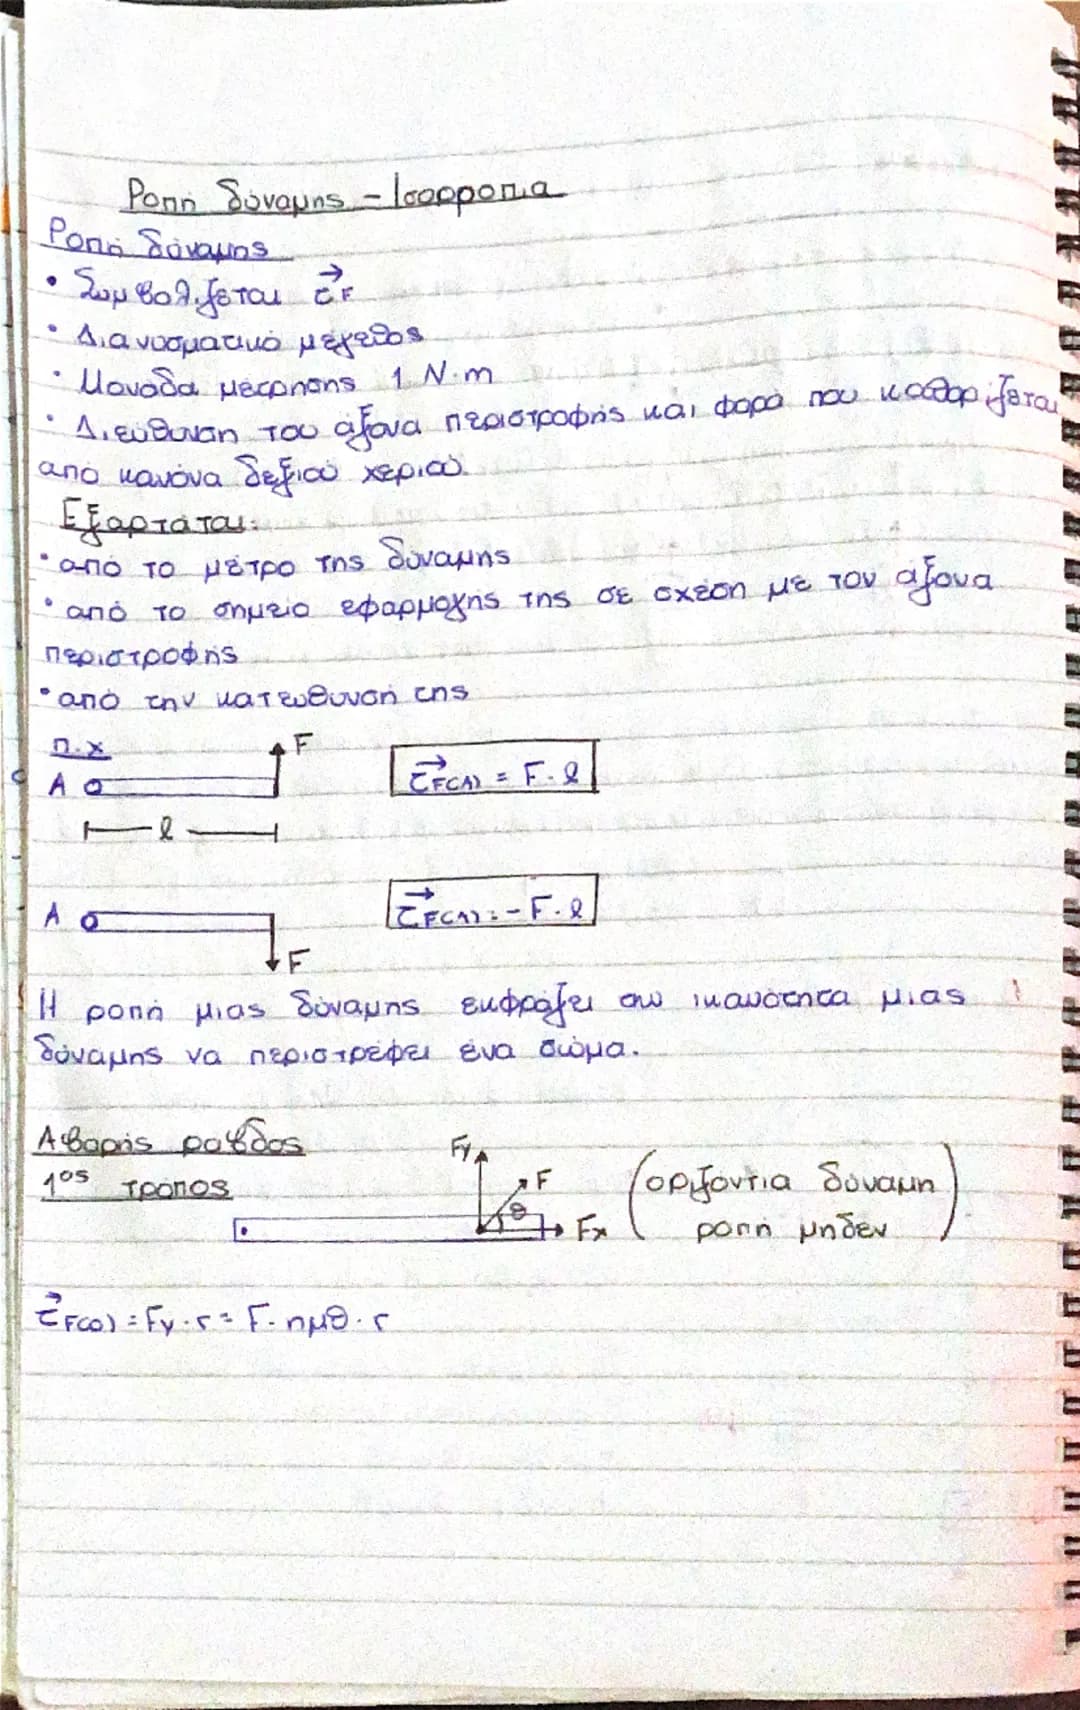 Ροπή δύναμης - Ισορροπια
Ροπή δύναμης
• Συμβολίζεται τ⃗F
• Διανυσματικό μέγεθος
• Μονάδα μέτρησης 1 N·m
• Διεύθυνση του άξονα περιστροφής και φορά που καθορίζεται
από κανόνα δεξιού χεριού.
Εξαρτάται:
• από το μέτρο της δύναμης
• από το σημείο εφαρμογής της σε σχέση με τον άξονα
περιστροφής
• από την κατεύθυνση της
π.χ
F
A
τ⃗F(A) = F·l
l
A
τ⃗F(A) = -F·l
F
Η ροπή μιας δύναμης εκφράζει την ικανότητα μιας
δύναμης να περιστρέφει ένα σώμα.
Αβαρής ράβδος
1ος τρόπος
Fy
F
θ
Fx
(οριζόντια δύναμη
ροπή μηδεν)
τ⃗F(o) = Fy·r = F·ημθ·r